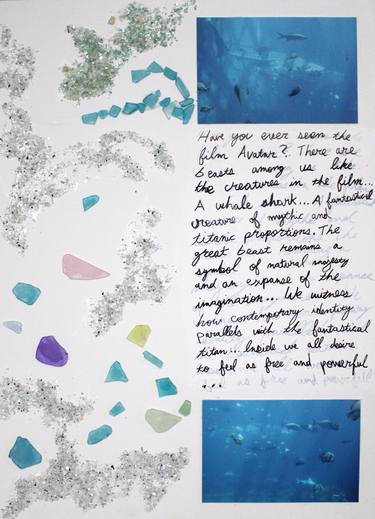 Have you ever seen the
film Avatar? There are
beasts among us like
the creatures in the film...
A whale shark... A fantastical
creature of mythic and
titanic proportions. The
great beast remains a
symbol of natural majesty
and an expanse of the
imagination... We witness
how contemporary identity
parallels with the fantastical
titan... Inside we all desire
to feel as free and powerful
...